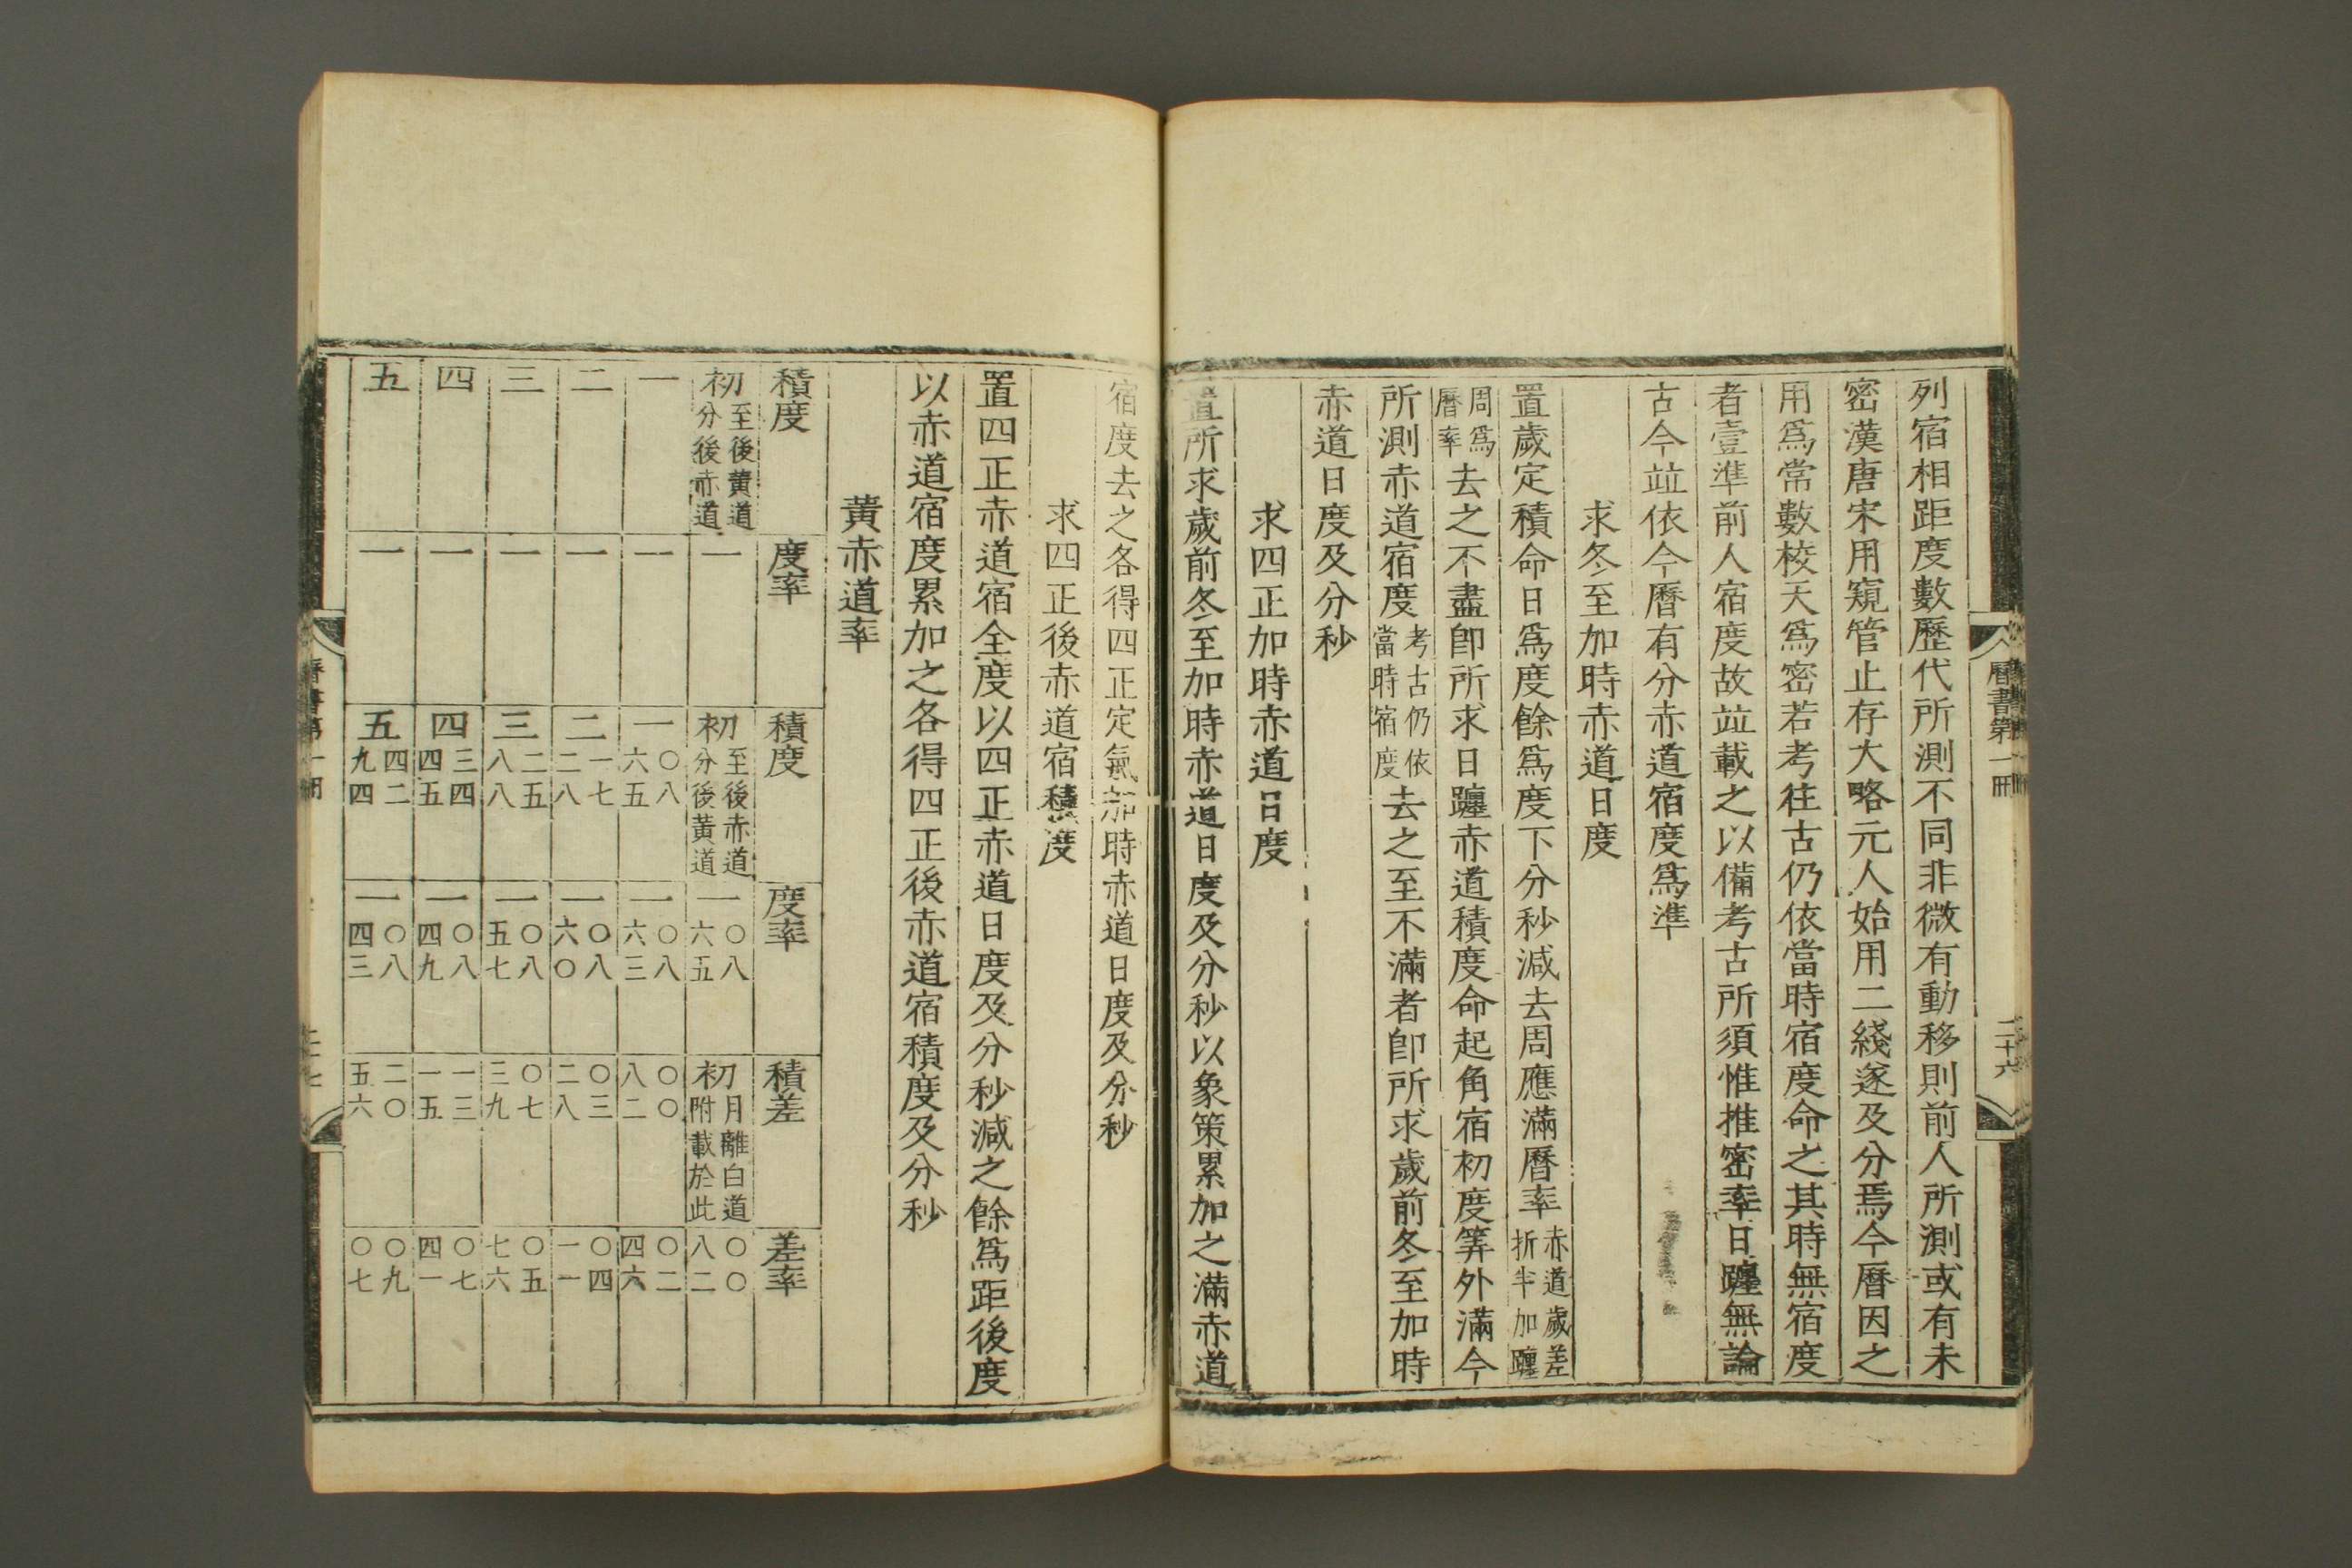 曆書第一冊 二十六
列宿相距度數歷代所測不同非微有動移則前人所測或有未
密漢唐宋用窺管止存大略元人始用二綫遂及分焉今曆因之
用爲常數校天爲密若考往古仍依當時宿度命之其時無宿度
者壹準前人宿度故竝載之以備考古所須惟推密率日躔無論
古今竝依今曆有分赤道宿度爲準
求冬至加時赤道日度
置歲定積命日爲度餘爲度下分秒減去周應滿曆率赤道歲差折半加躔
周爲曆率去之不盡卽所求日躔赤道積度命起角宿初度筭外滿今
所測赤道宿度考古仍依當時宿度去之至不滿者卽所求歲前冬至加時
赤道日度及分秒
求四正加時赤道日度
置所求歲前冬至加時赤道日度及分秒以象策累加之滿赤道
宿度去之各得四正定氣加時赤道日度及分秒
求四正後赤道宿積度
置四正赤道宿全度以四正赤道日度及分秒減之餘爲距後度
以赤道宿度累加之各得四正後赤道宿積度及分秒
黃赤道率
積度 度率 積度 度率 積差 差率
初至後黃道分後赤道 一 初至後赤道分後黃道 一〇八六五 初月離白道附載於此 〇〇八二
一 一 一〇八六五 一〇八六三 〇〇八二 〇二四六
二 一 二一七二八 一〇八六〇 〇三二八 〇四一一
三 一 三二五八八 一〇八五七 〇七三九 〇五七六
四 一 四三四四五 一〇八四九 一三一五 〇七四一
五 一 五四二九四 一〇八四三 二〇五六 〇九〇七
曆書第一冊